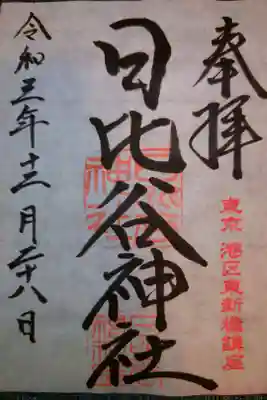 奉拝
東京 港区東新橋鎮座
日比谷神社
令和三年十二月二十八日